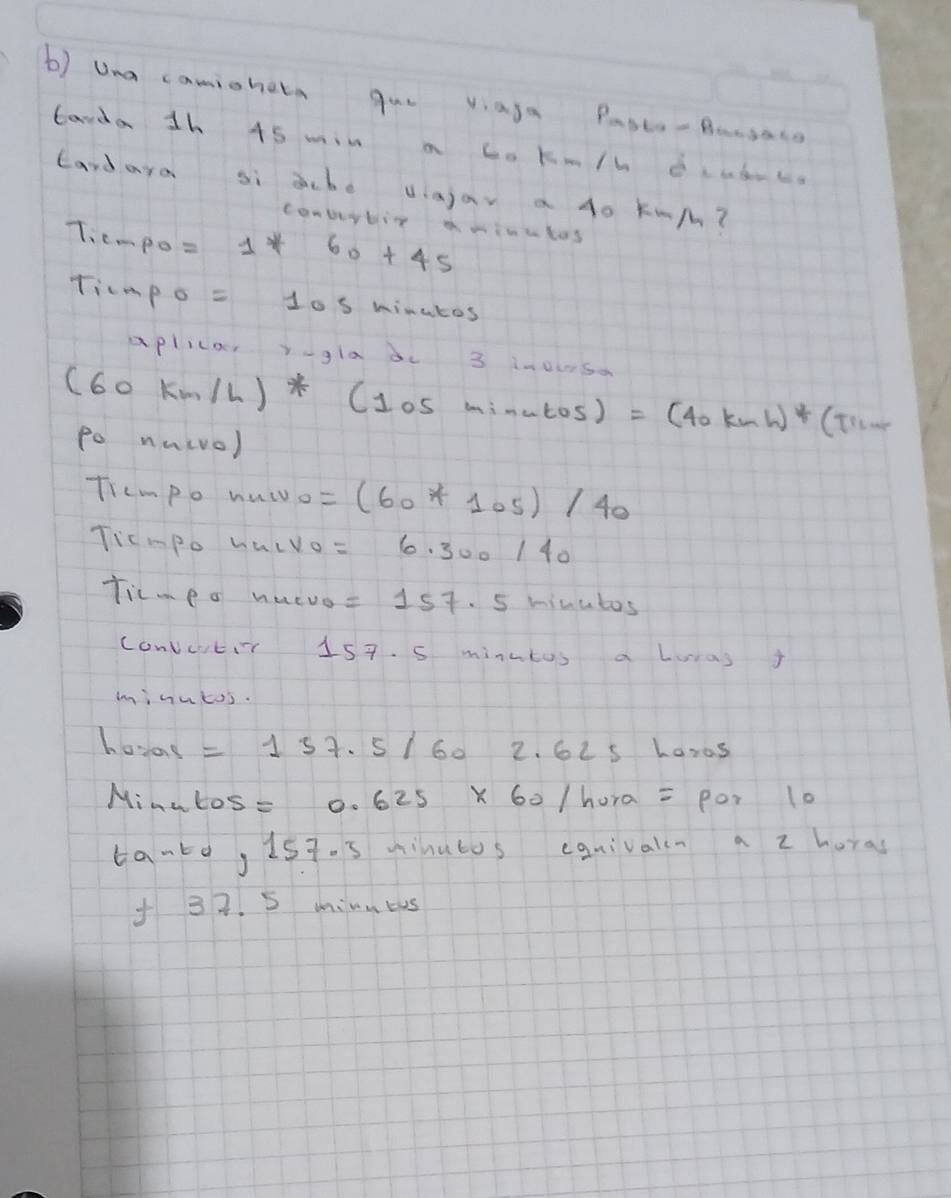 b) Una camioneta que viaja Pasto - Buesaco
tarda 1h 45 min a 60 Km/h ¿cuánto
tardara si debe viajar a 40 Km/h?
convertir a minutos
Tiempo = 1 * 60 + 45
Tiempo = 105 minutos
aplicar regla de 3 inversa
(60 Km/h) * (105 minutos) = (40 km h) * (Tiem
po nuevo)
Tiempo nuevo = (60 * 105) / 40
Tiempo nuevo = 6.300 / 40
Tiempo nuevo = 157.5 minutos
convertir 157.5 minutos a horas y
minutos.
horas = 157.5 / 60 2.625 horas
Minutos = 0.625 x 60 / hora = por lo
tanto, 157.5 minutos equivalen a 2 horas
y 37.5 minutos